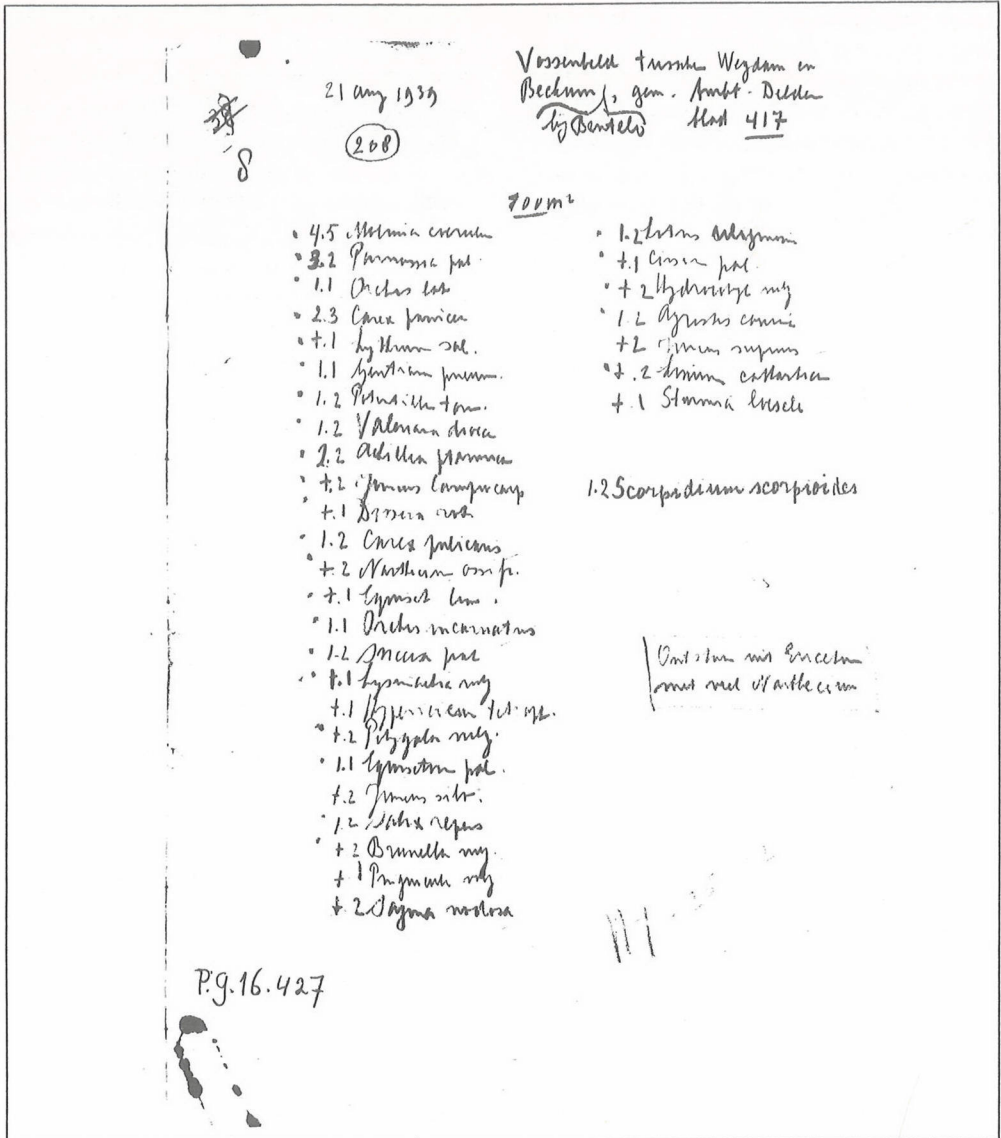 21 aug 1939
208
8
Vossenbeld tusschen Wegdam en
Beckum, gem. Ambt-Delden
bij Bentelo blad 417
100 m²
4.5 Molinia coerulea
3.2 Parnassia pal.
1.1 Orchis lat
2.3 Carex panicea
+.1 Lythrum sal.
1.1 Gentiana pneum.
1.2 Potentilla torm.
1.2 Valeriana dioica
2.2 Achillea ptarmica
+.2 Juncus lampocarp
+.1 Drosera rot.
1.2 Carex pulicaris
+.2 Narthecium ossifr.
+.1 Equiset lim.
1.1 Orchis incarnatus
1.2 Succisa prat
+.1 Lysimachia vulg
+.1 Hypericum tetrapt.
+.2 Polygala vulg.
1.1 Equisetum pal.
+.2 Juncus silv.
1.2 Salix repens
+ 2 Brunella vulg.
+ 1 Pinguicula vulg
+ 2 Sagina nodosa
1.2 Lotus uliginosus
+.1 Cirsium pal.
+ 2 Hydrocotyle vulg
1.2 Agrostis canina
+2 Juncus supinus
+.2 Linum catharticum
+.1 Stellaria
1.2 Scorpidium scorpioides
Ontstaan uit Ericetum
met veel Narthecium
P.g.16.427